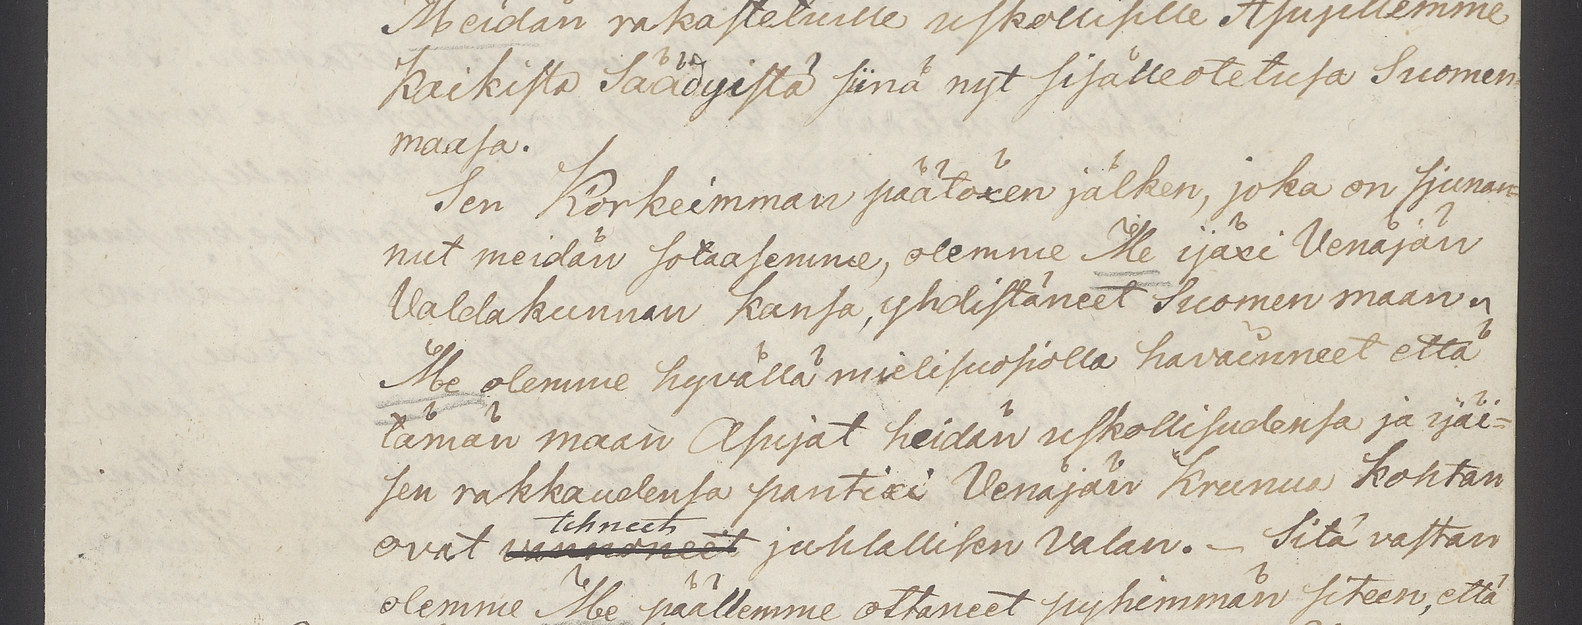 Meidän rakastetuille uskollisille Asujillemme
Kaikista Säädyistä siinä nyt sisälleotetusa Suomen=
maasa.
Sen Korkeimman päätöxen jälken, joka on sjunan=
nut meidän sotaasemme, olemme Me ijäxi Venäjän
Valdakunnan kansa, yhdistäneet Suomen maan.
Me olemme hyvällä mielisuosiolla havainneet että
tämän maan Asujat heidän uskollisudensa ja ijäi=
sen rakkaudensa pantixi Venäjän Krunua kohtan
ovat tehneet juhlallisen Valan. – Sitä vastan
olemme Me päällemme ottaneet pyhimmän siteen, että